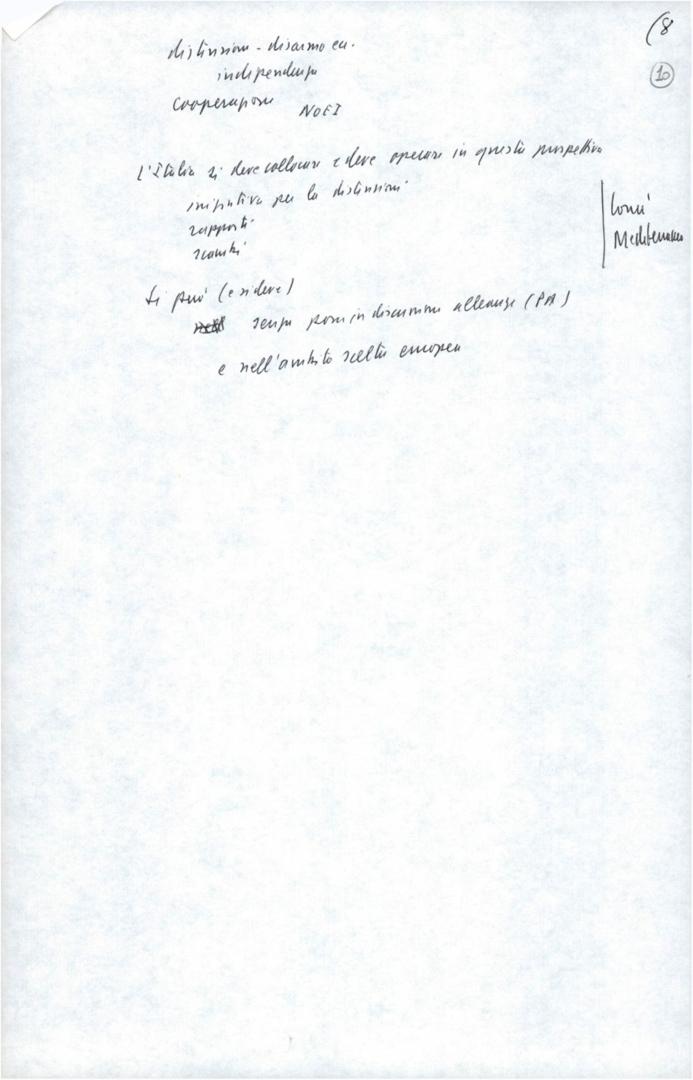 (8
10
distensione - disarmo ecc.
indipendenza
cooperazione NOEI
L'Italia si deve collocare e deve operare in questa prospettiva
iniziativa per la distensione
rapporti
scambi
Lomé
Mediterraneo
Si può (e si deve)
senza porre in discussione alleanze (PA)
e nell'ambito scelta europea